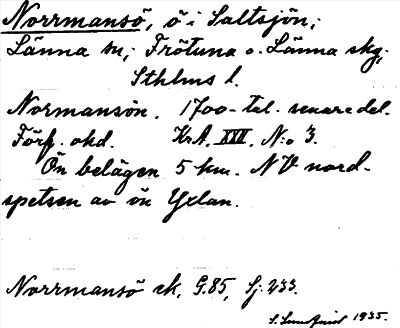 Norrmansö, ö i Saltsjön;
Länna sn; Frötuna o. Länna skg;
Sthlms l.
Normansön. 1700-tal. senare del.
Förf. okd. KrA. XVI. N:o 3.
Ön belägen 5 km. NV nord-
spetsen av ön Yxlan.
Norrmansö ek. G.85, Sj. 233.
1935.